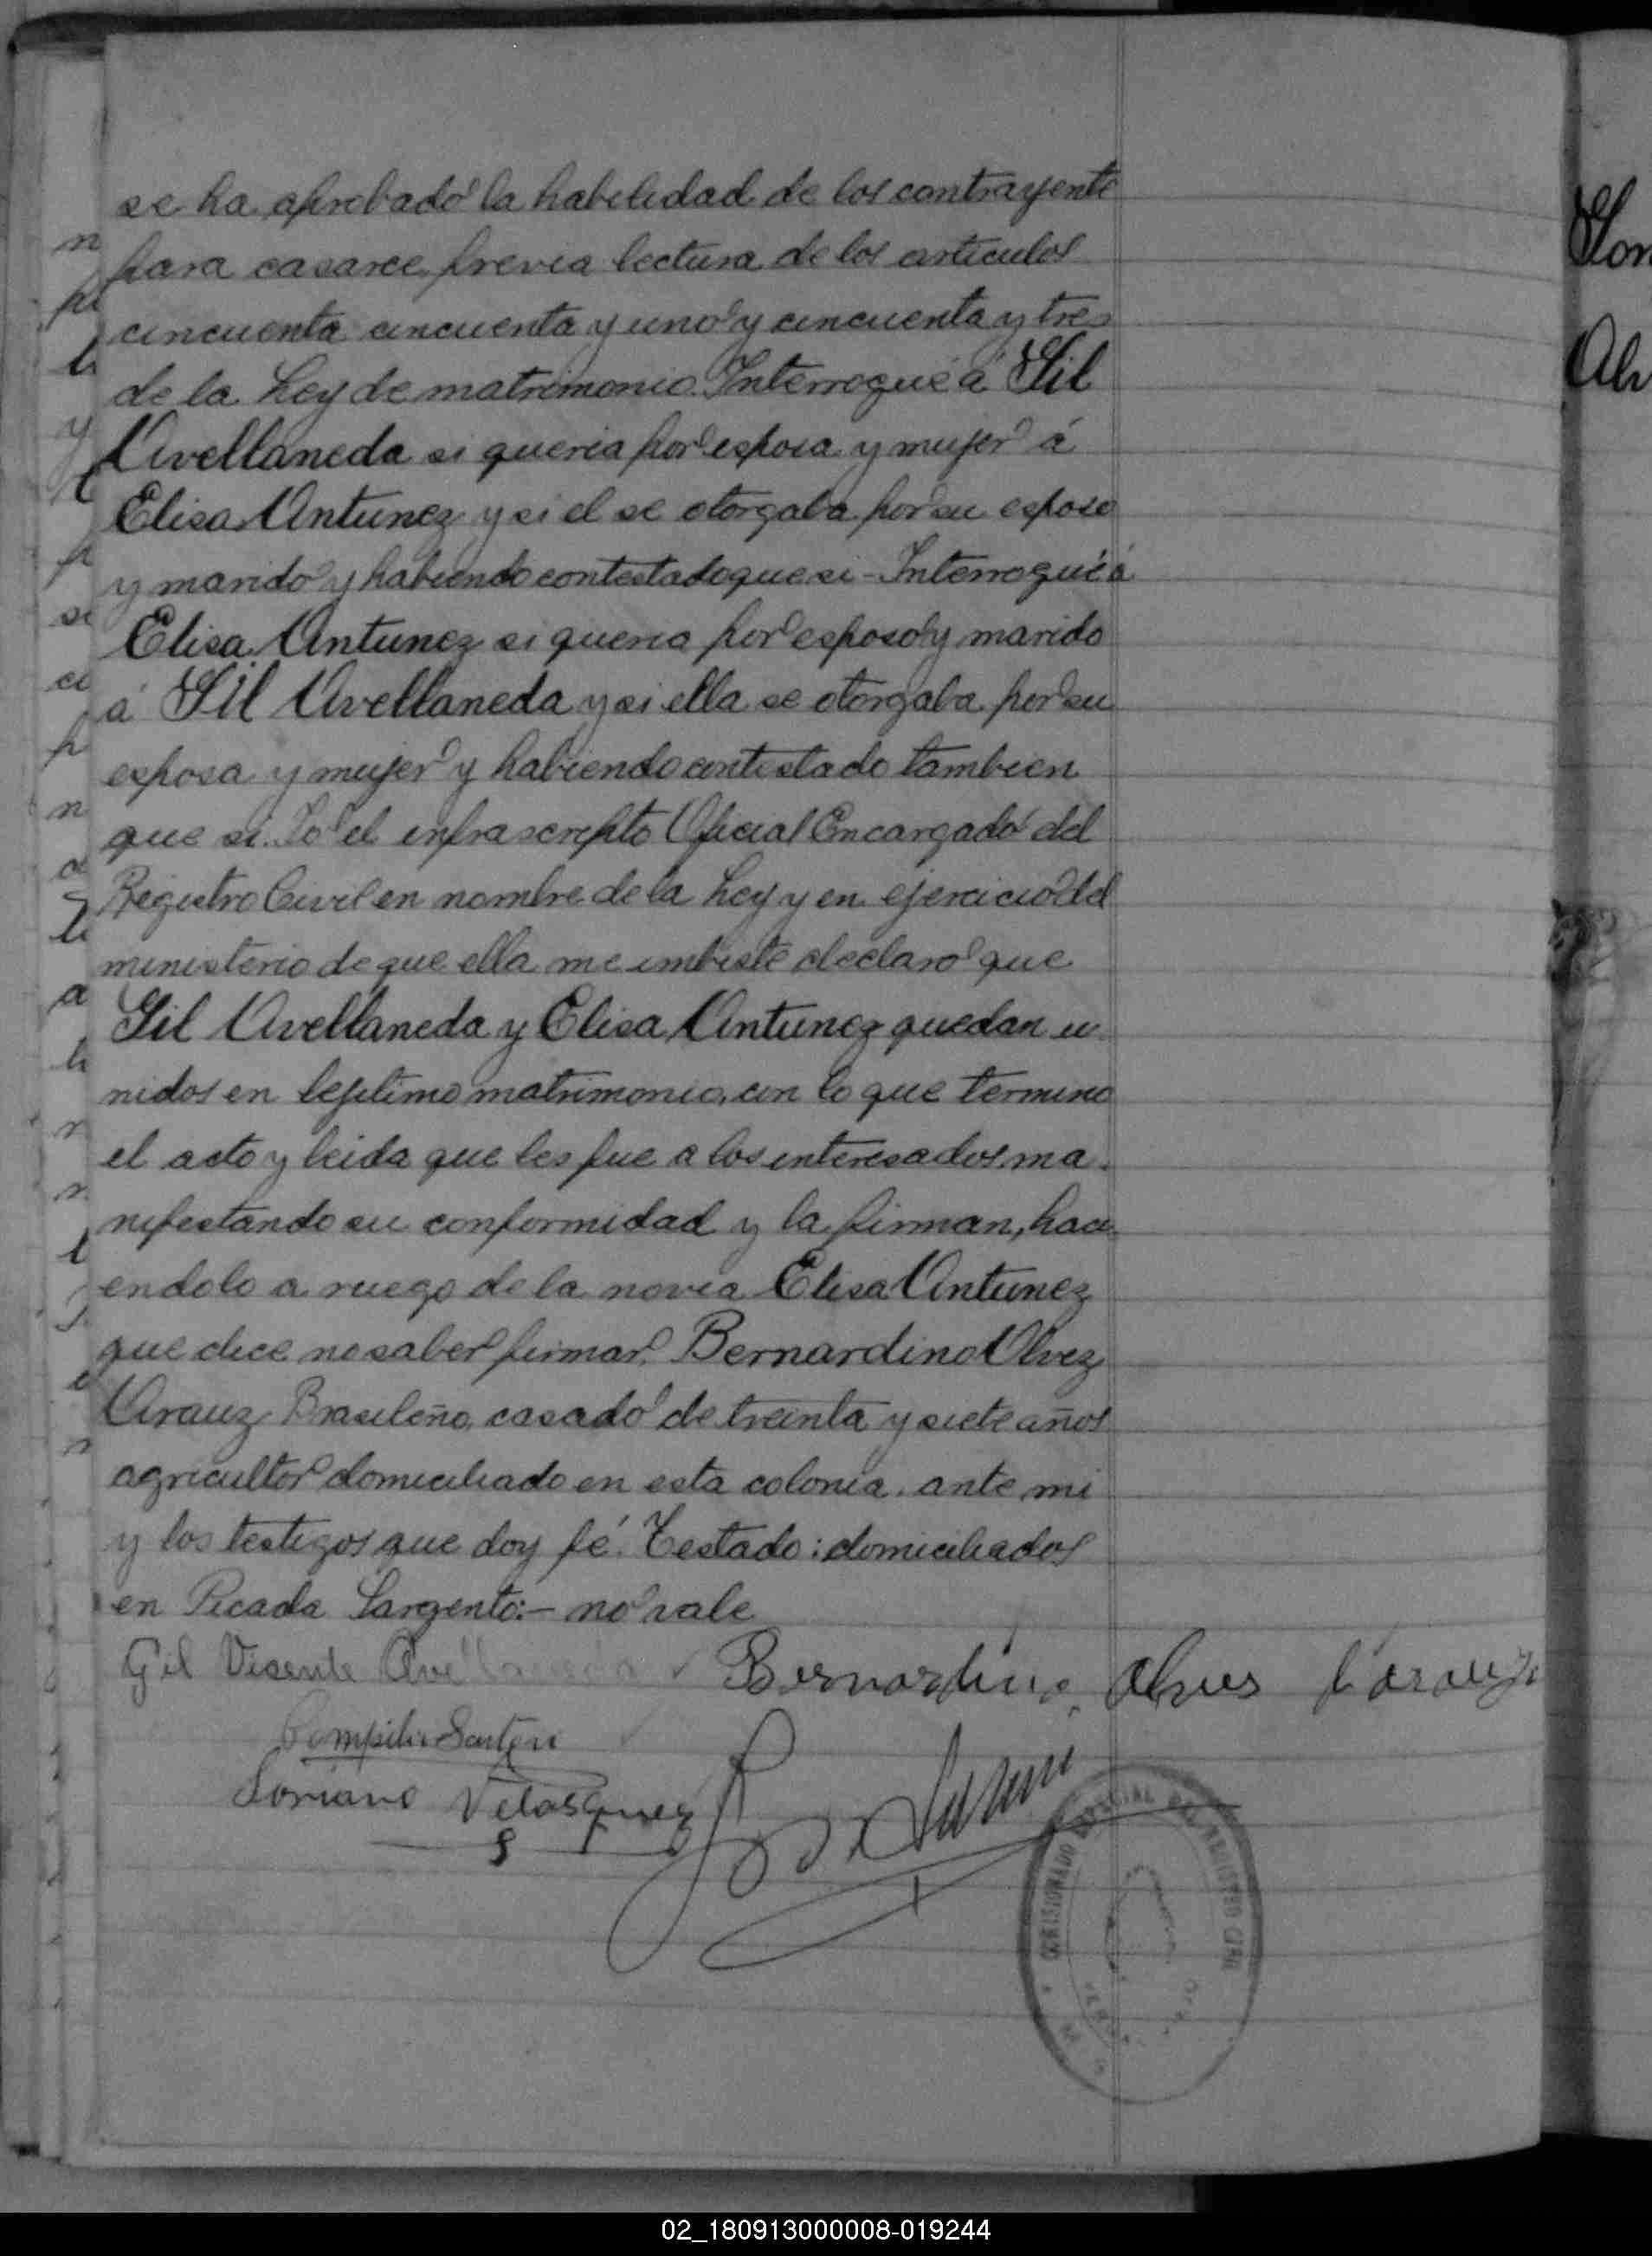 se ha aprobado la habilidad de los contrayente
para casarce previa lectura de los articulos
cincuenta cincuenta y uno y cincuenta y tres
de la Ley de matrimonio. Interrogué á Gil
Avellaneda si queria por esposa y mujer á
Elisa Antunez y si el se otorgaba por su esposo
y marido y habiendo contestado que si - Interrogué á
Elisa Antunez si queria por esposo y marido
á Gil Avellaneda y si ella se otorgaba por su
esposa y mujer y habiendo contestado tambien
que si. Yo el infrascripto Oficial Encargado del
Registro Civil en nombre de la Ley y en ejercicio del
ministerio de que ella me imbiste declaro que
Gil Avellaneda y Elisa Antunez quedan u-
nidos en lejitimo matrimonio, con lo que termino
el acto y leida que les fue a los interesados ma-
nifestando su conformidad y la firman, haci-
endolo a ruego de la novia Elisa Antunez
que dice no saber firmar. Bernardino Alvez
Arauz Brasileño, casado de treinta y siete años
agricultor domiciliado en esta colonia. ante mi
y los testigos que doy fé. Testado: domiciliados
en Picada Sargento:- no vale
Gil Visente Avellaneda Bernardino Alves
Soriano Velasquez
COMISIONADO ESPECIAL DEL REGISTRO CIVIL
02_180913000008-019244